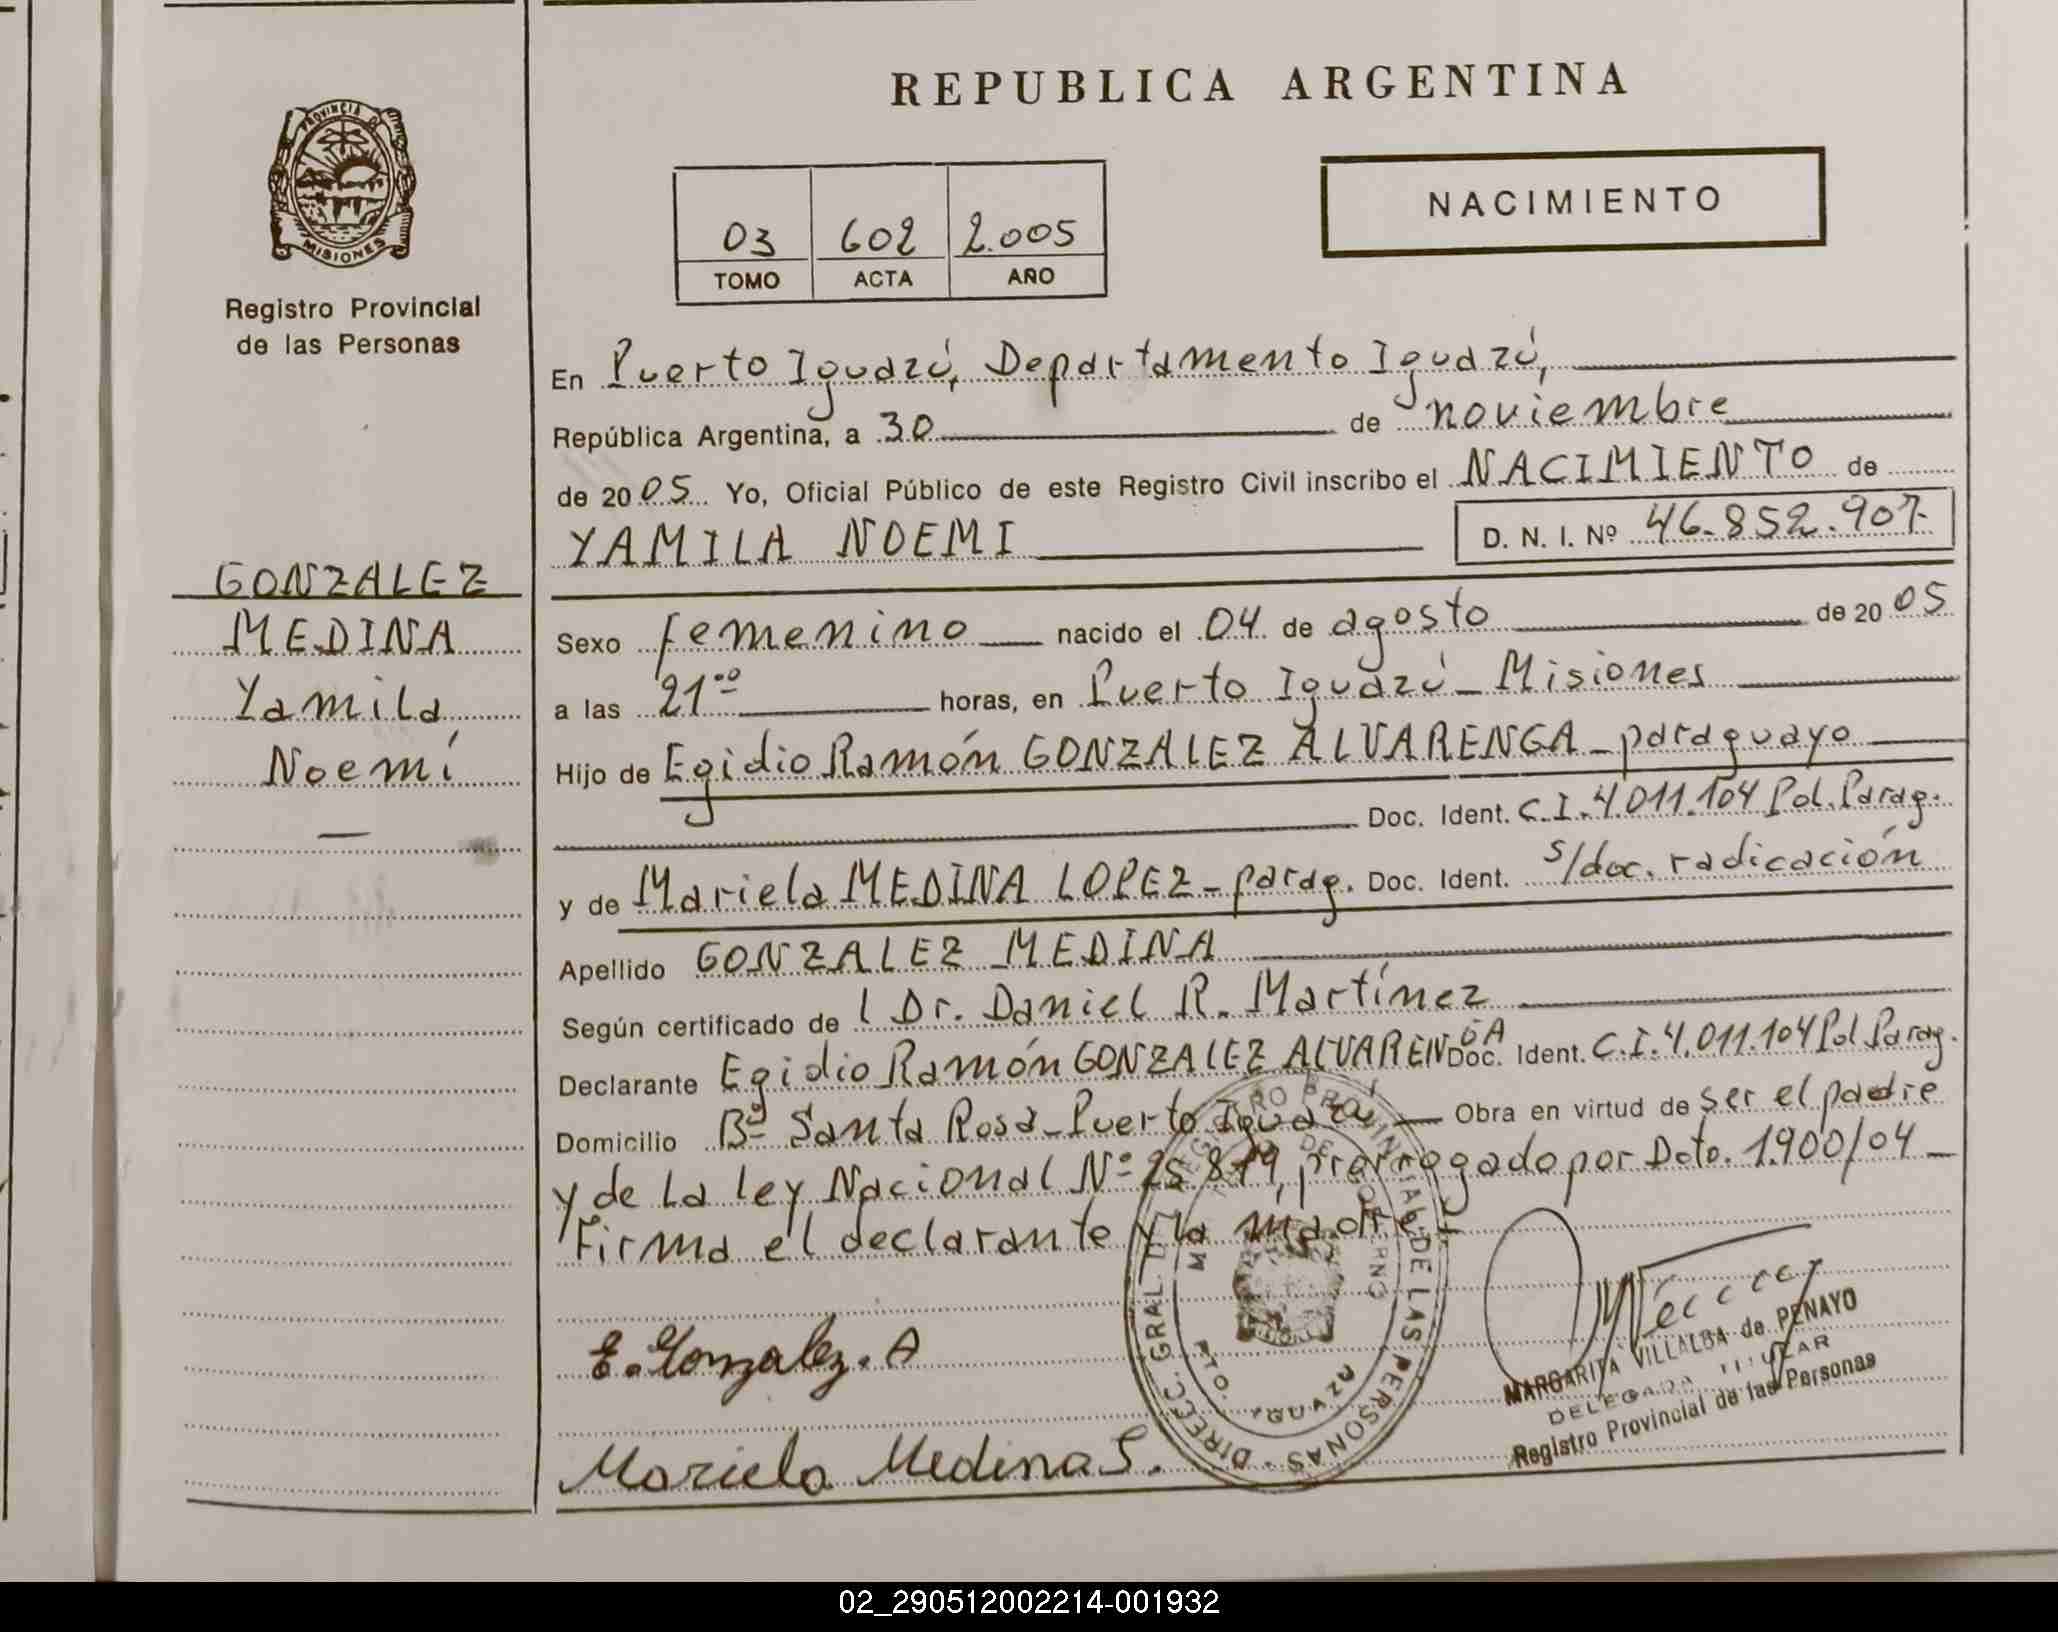 REPUBLICA ARGENTINA
PROVINCIA DE
MISIONES
Registro Provincial
de las Personas
NACIMIENTO
03 602 2.005
TOMO ACTA AÑO
En Puerto Iguazú, Departamento Iguazú,
República Argentina, a 30 de noviembre
de 2005 Yo, Oficial Público de este Registro Civil inscribo el NACIMIENTO de
YAMILA NOEMI D. N. I. Nº 46.852.907-
GONZALEZ
MEDINA
Yamila
Noemí
Sexo femenino nacido el 04 de agosto de 2005
a las 21⁰⁰ horas, en Puerto Iguazú - Misiones
Hijo de Egidio Ramón GONZALEZ ALVARENGA - paraguayo
Doc. Ident. C.I. 4.011.104 Pol. Parag.
y de Mariela MEDINA LOPEZ - parag. Doc. Ident. s/doc. radicación
Apellido GONZALEZ MEDINA
Según certificado de l Dr. Daniel R. Martínez
Declarante Egidio Ramón GONZALEZ ALVARENGA Doc. Ident. C.I. 4.011.104 Pol Parag.
Domicilio Bº Santa Rosa - Puerto Iguazú - Obra en virtud de ser el padre
y de la ley Nacional Nº 25.819, prorrogado por Dcto. 1.900/04 -
Firma el declarante y la madre.
E. Gonzalez. A
Mariela Medina L.
DIREEC. GRAL DEL REGISTRO PROVINCIAL DE LAS PERSONAS
PTO. IGUAZU
MARGARITA VILLALBA de PENAYO
DELEGADA TITULAR
Registro Provincial de las Personas
02_290512002214-001932